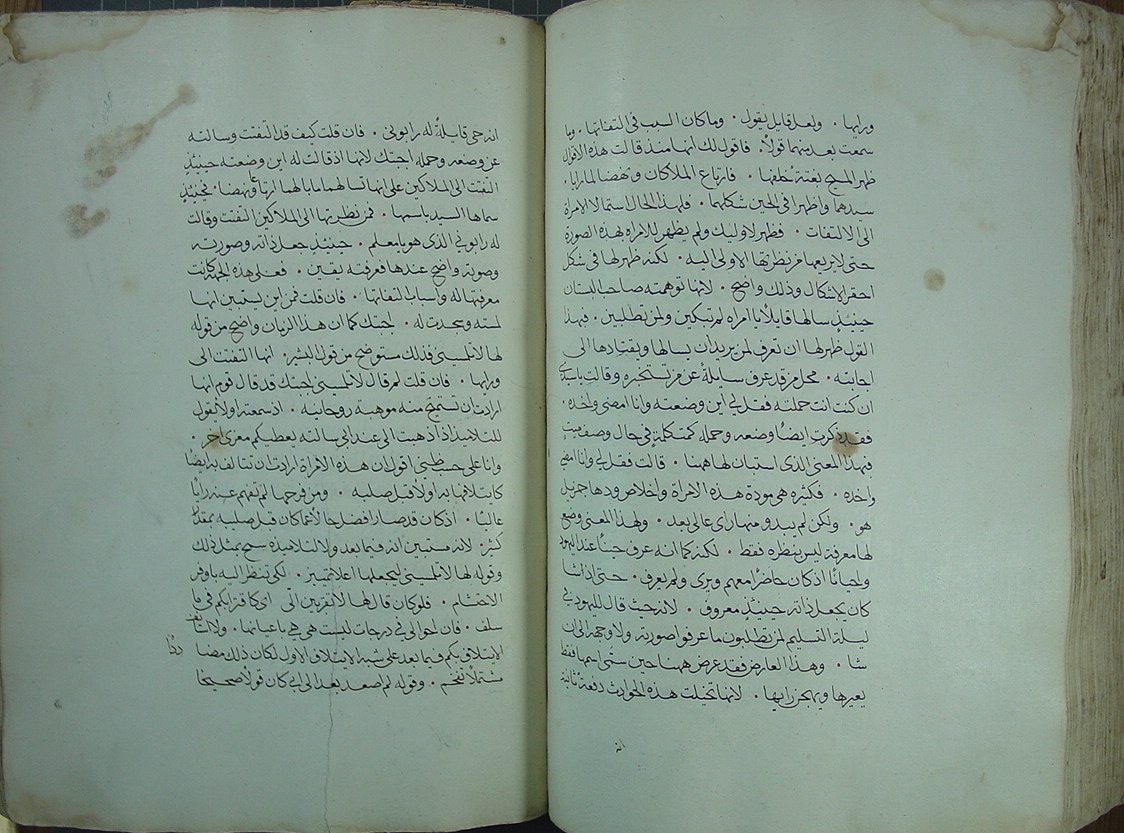 ورايها · ولعل قايل يقول · وما كان السبب في التفاتها · وما
سمعت بعد منهما قولاً · فاقول لك انها منذ قالت هذه الاقوال
ظهر المسيح بغتة خلفها · فارتاع الملاكان ونهضا لما رايا
سيدهما واظهرا في الحين شكلهما · فلهذا الحال استمالا الامراة
الى الالتفات · فظهر لاوليك ولم يظهر للامراه بهذه الصورة
حتى لا يريعها من نظرتها الاولى اليه · لكنه ظهر لها في شكل
احقر الاشكال وذلك واضح · لانها توهمته صاحب البستان
حينيذٍ سالها قايلاً يا امراه لم تبكين ولمن تطلبين · فهذا
القول ظهر لها ان تعرف لمن يريد ان يسالها ويقتادها الى
اجابته · محل من قد عرف سايلة عن من تستخبره وقالت يا سيدي
ان كنت انت حملته فقل لي اين وضعته وانا امضي واخذه ·
فقد ذكرت ايضاً وضعه وحمله كمتكلمة في حال وصف ميت
فهذا المعنى الذي استبان لها ههنا · قالت فقل لي وانا امضي
واخذه · فكثيره هي مودة هذه الامراة واخلاص ودها جزيل
هو · ولكن لم يبدو منها راي عالي بعد · ولهذا المعنى وضع
لها معرفة ليس بنظره فقط · لكنه كما انه عرف حيناً عند اليهود
واحياناً اذ كان حاضراً معهم ويرى ولم يعرف · حتى اذا شا
كان يجعل ذاته حينيذٍ معروف · لانه حيث قال لليهود في
ليلة التسليم لمن تطلبون ما عرفوا صورته ولا وجهه الى ان
شا · وهذا العارض فقد عرض ههنا حين سمى اسمها فقط
يعيرها ويهجن رايها · لانها تخيلت هذه الحوادث دفعة ثانية
انه حي قايلةً له رابوني · فان قلت كيف قد التفتت وسالته
عن وضعه وحمله اجبتك لانها اذ قالت له اين وضعته حينيذٍ
التفتت الى الملاكين على انها تسالهما ما بالهما ارتاعا ونهضا · فحينيذٍ
سماها السيد باسمها · فمن نظرتها الى الملاكين التفتت وقالت
له رابوني الذي هو يا معلم · حينيذٍ جعل ذاته وصورته
وصوته واضح عندها فعرفته يقين · فعلى هذه الجهة كانت
معرفتها له واسباب التفاتها · فان قلت فمن اين يستبين انها
لمسته وسجدت له · اجبتك كما ان هذا الزمان واضح من قوله
لها لا تلمسيني فذلك مستوضح من قول البشير · انها التفتت الى
ورايها · فان قلت لم قال لا تلمسيني اجبتك قد قال قوم انها
ارادت ان تستميح منه موهبة روحانيه · اذ سمعته اولا يقول
للتلاميذ اذا ذهبت الى عند ابي سالته يعطيكم معزي اخر ·
وانا على حسب ظني اقول ان هذه الامراة ارادت ان تتالف به ايضاً
كايتلافها به اولا قبل صلبه · ومن فرحها لم تفهم عنه رايا
عاليًا · اذ كان قد صار افضل حالاً مما كان قبل صلبه بمقدار
كثير · لانه مستبين انه فيما بعد ولا لتلاميذه سمح بمثل ذلك
وقوله لها لا تلمسيني ليجعلها اعلا تمييز · لكي تنظر اليه باوفر
الاحتشام · فلو كان قال لها لا تقربين الي اي كاقترابكم في ما
سلف · فان احوالي في درجات ليست هي هي باعيانها · ولا
الايتلاف بكم فيما بعد على شبه الايتلاف الاول لكان ذلك مضا
مشتملاً تفخم · وقوله لم اصعد بعد الى ابي كان قولاً صحيحًا